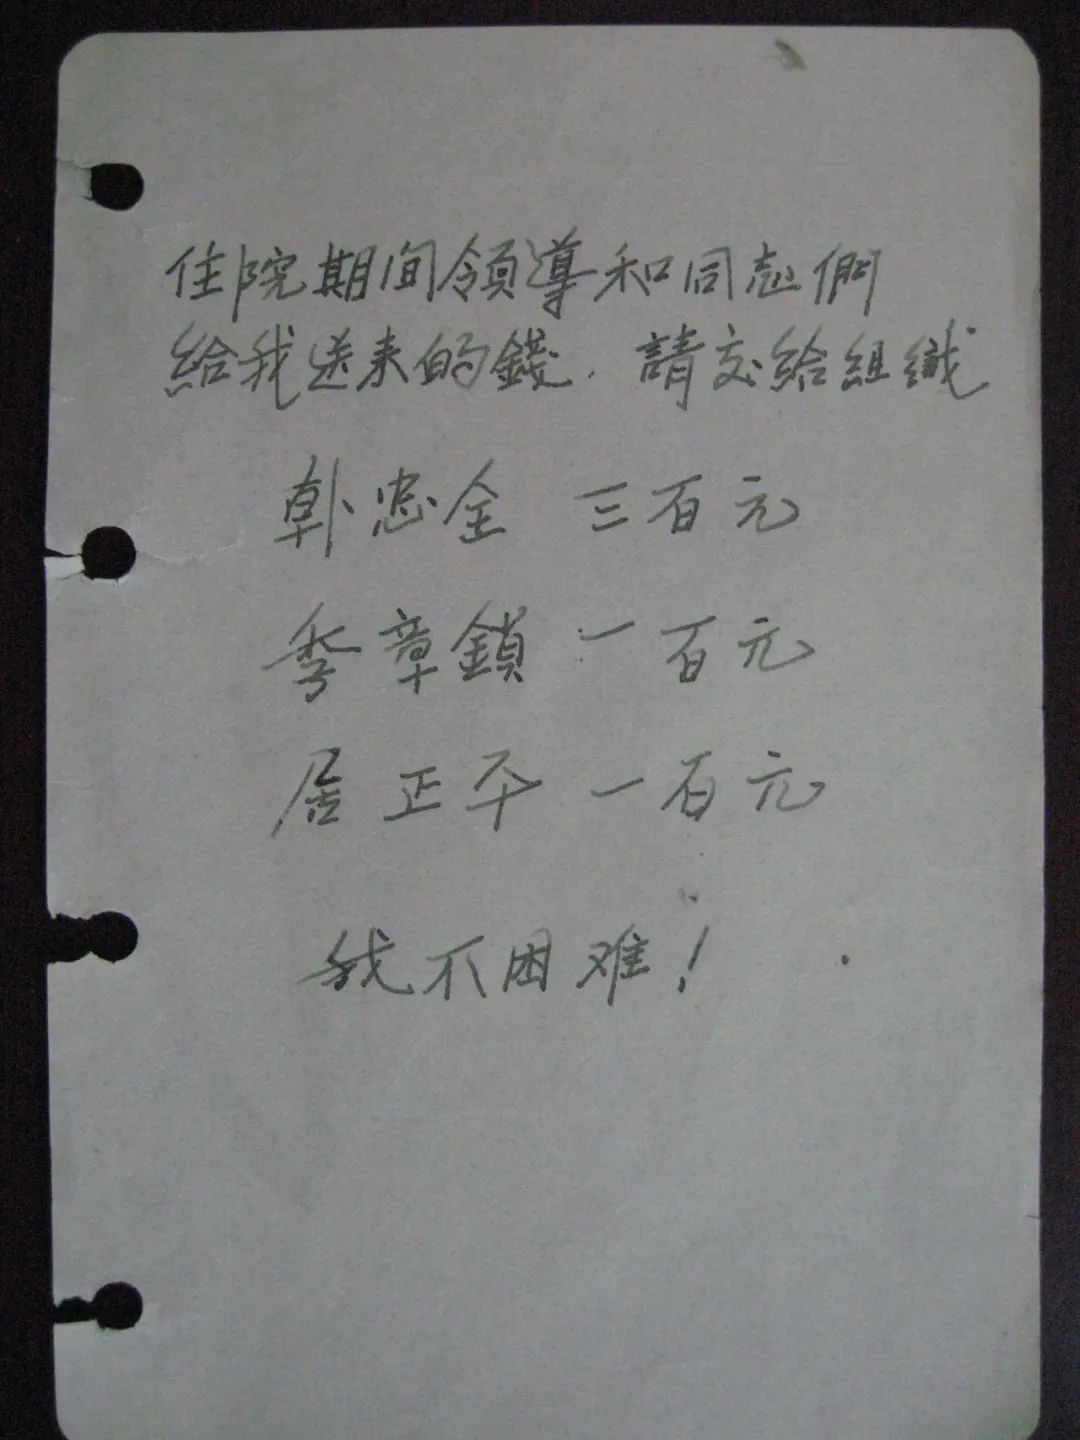 住院期间領導和同志們
給我送来的錢.請交給組織
韩忠全 三百元
季章鎖 一百元
居正平 一百元
我不困难!